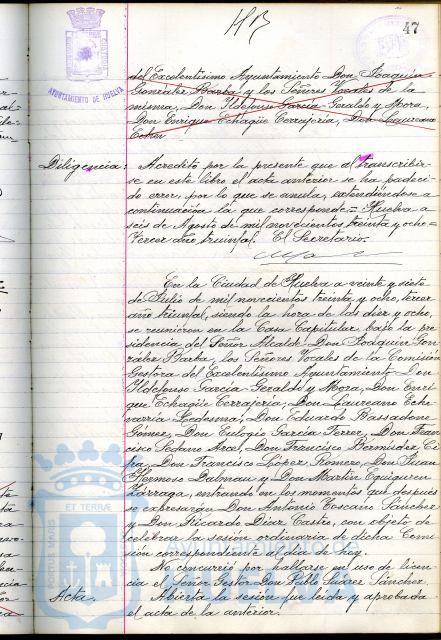 47
AYUNTAMIENTO DE HUELVA
del Excelentísimo Ayuntamiento Don Joaquín
González Barba y los Señores Vocales de la
misma, Don Ildefonso García-Geraldo y Mora,
Don Enrique Echagüe Cerrajería, Don Laureano
Echev
Diligencia: Acredito por la presente que al transcribir-
se en este libro el acta anterior se ha padeci-
do error, por lo que se anula, extendiéndose a
continuación la que corresponde.= Huelva a
seis de Agosto de mil novecientos treinta y ocho=
Tercer año triunfal. El Secretario.
En la Ciudad de Huelva a veinte y siete
de Julio de mil novecientos treinta y ocho, tercer
año triunfal, siendo la hora de las diez y ocho,
se reunieron en la Casa Capitular bajo la pre-
sidencia del Señor Alcalde Don Joaquín Gon-
zález Barba, los Señores Vocales de la Comisión
Gestora del Excelentísimo Ayuntamiento Don
Ildefonso García-Geraldo y Mora, Don Enri-
que Echagüe Cerrajería, Don Laureano Eche-
varría Ledesma, Don Eduardo Bassadone
Gómez, Don Eulogio García Ferrer, Don Fran-
cisco Sedano Arce, Don Francisco Bermúdez Ci-
fra, Don Francisco López Romero, Don Juan
Hermoso Dalmau y Don Martín Eguiguren
Lárraga, entrando en los momentos que después
se expresarán Don Antonio Toscano Sánchez
y Don Ricardo Díaz Castro, con objeto de
celebrar la sesión ordinaria de dicha Comi-
sión correspondiente al día de hoy.
No concurrió por hallarse en uso de licen-
cia el Señor Gestor Don Pablo Suárez Sánchez.
Acta. Abierta la sesión fue leída y aprobada
el acta de la anterior.
PORTUS MARIS ET TERRAE